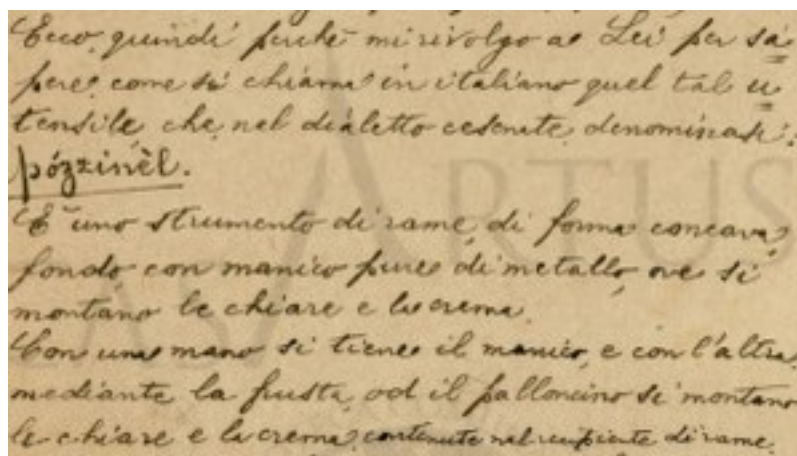 Ecco, quindi perchè mi rivolgo a Lei per sa=
pere come si chiama in italiano quel tal u=
tensile, che, nel dialetto cesenate, denominasi:
pózzinèl.
E' uno strumento di rame, di forma concava,
fondo, con manico pure di metallo, ove si
montano le chiare e la crema.
Con una mano si tiene il manico, e con l'altra,
mediante la frusta, od il palloncino si montano
le chiare e la crema, contenute nel recipiente di rame.
CASA ARTUSI